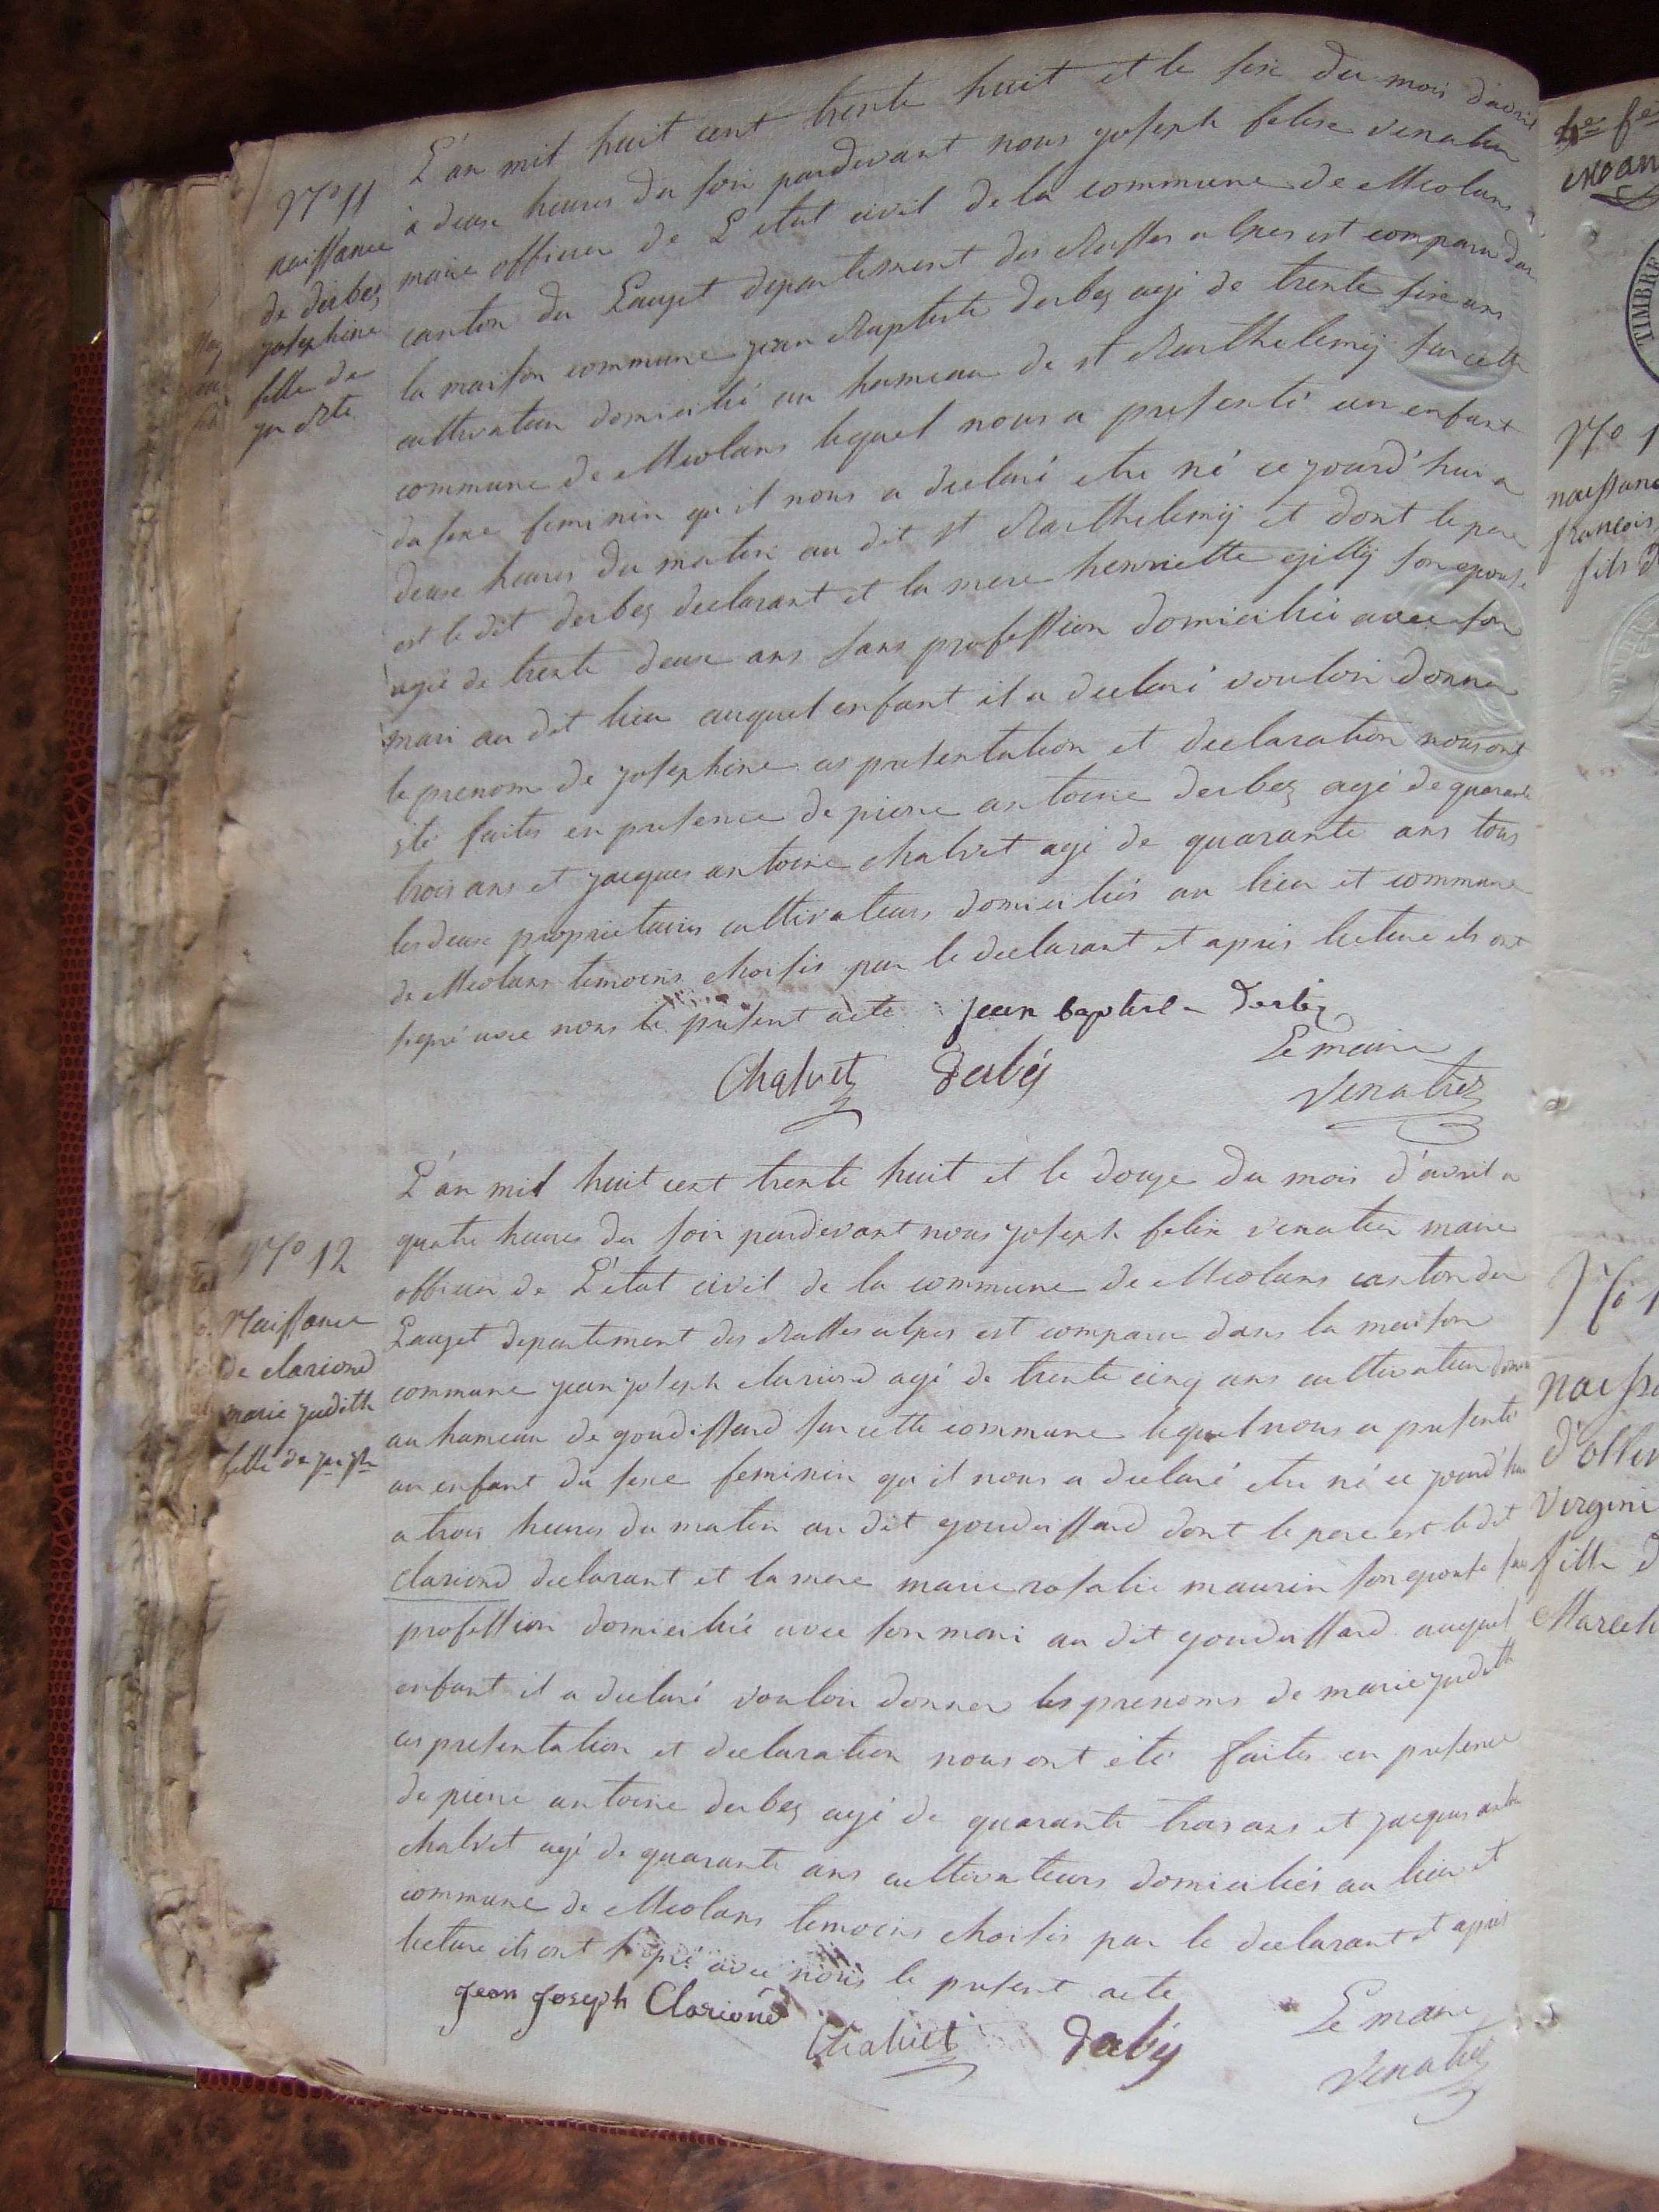 N° 11
naissance
de derbez
josephine
fille de
jn Bte
L'an mil huit cent trente huit et le six du mois d'avril
à deux heures du soir pardevant nous joseph felix venatier
maire officier de L'etat civil de la commune de Meolans
canton du Lauzet departement des Basses alpes est comparu dans
la maison commune jean Baptiste derbez agé de trente six ans
cultivateur domicilié au hameau de st Barthelemy sur cette
commune de Meolans lequel nous a presenté un enfant
du sexe feminin qu'il nous a declaré etre né ce jourd'hui a
deux heures du matin au dit st Barthelemy et dont le pere
est le dit derbez declarant et la mere henriette gilly son epouse
agée de trente deux ans sans profession domiciliée avec son
mari au dit lieu auquel enfant il a declaré vouloir donner
le prenom de josephine ces presentation et declaration nous ont
été faites en presence de pierre antoine derbez agé de quarante
trois ans et jacques antoine chalvet agé de quarante ans tous
les deux proprietaires cultivateurs domiciliés au lieu et commune
de Meolans temoins choisis par le declarant et après lecture ils ont
signé avec nous le present acte jean baptiste derbez
Le maire
Chalvet Derbéz
Venatier
N° 12
Naissance
de clariond
marie judith
fille de jn jph
L'an mil huit cent trente huit et le douze du mois d'avril a
quatre heures du soir pardevant nous joseph felix venatier maire
officier de L'etat civil de la commune de Meolans canton du
Lauzet departement des Basses alpes est comparu dans la maison
commune jean joseph clariond agé de trente cinq ans cultivateur
au hameau de goudissard sur cette commune lequel nous a presenté
un enfant du sexe feminin qu'il nous a declaré etre né ce jourd'hui
a trois heures du matin au dit goudissard dont le pere est le dit
clariond declarant et la mere marie rosalie maurin son epouse sans
profession domiciliée avec son mari au dit goudissard auquel
enfant il a declaré vouloir donner les prenoms de marie judith
ces presentation et declaration nous ont été faites en presence
de pierre antoine derbez agé de quarante trois ans et jacques antoine
chalvet agé de quarante ans cultivateurs domiciliés au lieu et
commune de Meolans temoins choisis par le declarant et après
lecture ils ont signé avec nous le present acte
jean joseph Clariond
Chalvet Derbéz
Le maire
Venatier
TIMBRE
naissance
francois
fils d
d'ollivier
virgini
fille d